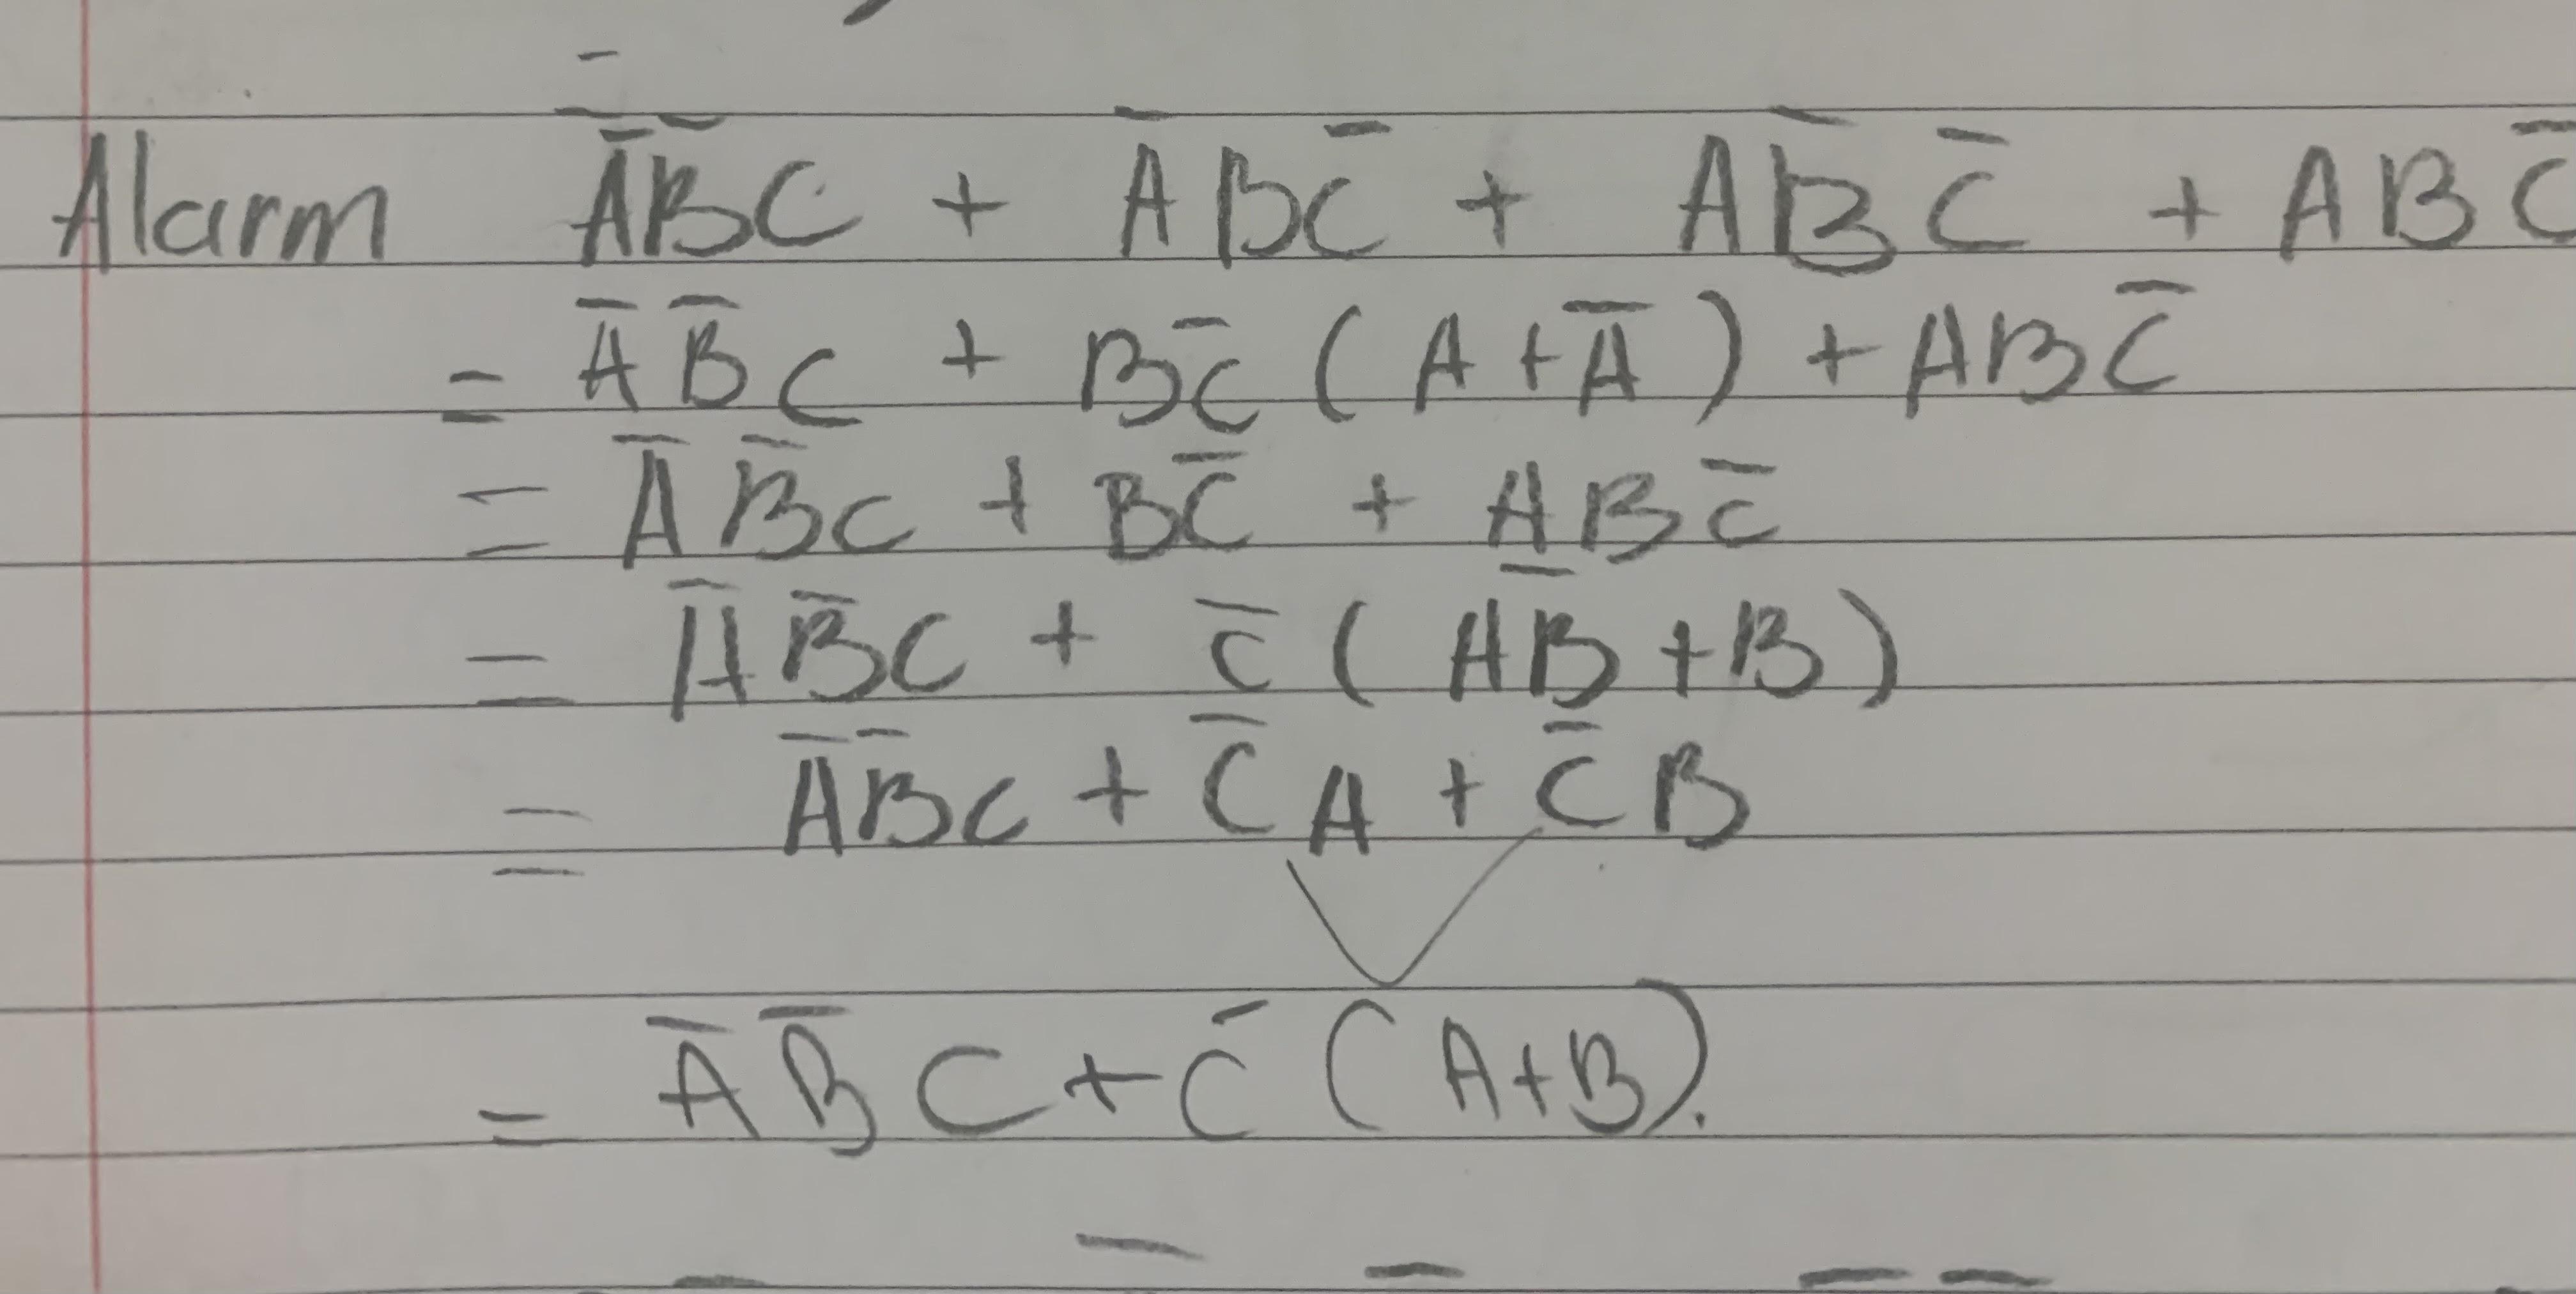 Alarm A̅B̅C + A̅BC̅ + AB̅C̅ + ABC̅
= A̅B̅C + BC̅(A+A̅) + ABC̅
= A̅B̅C + BC̅ + ABC̅
= A̅B̅C + C̅(AB̅+B)
= A̅B̅C + C̅A + C̅B
= A̅B̅C + C̅(A+B).